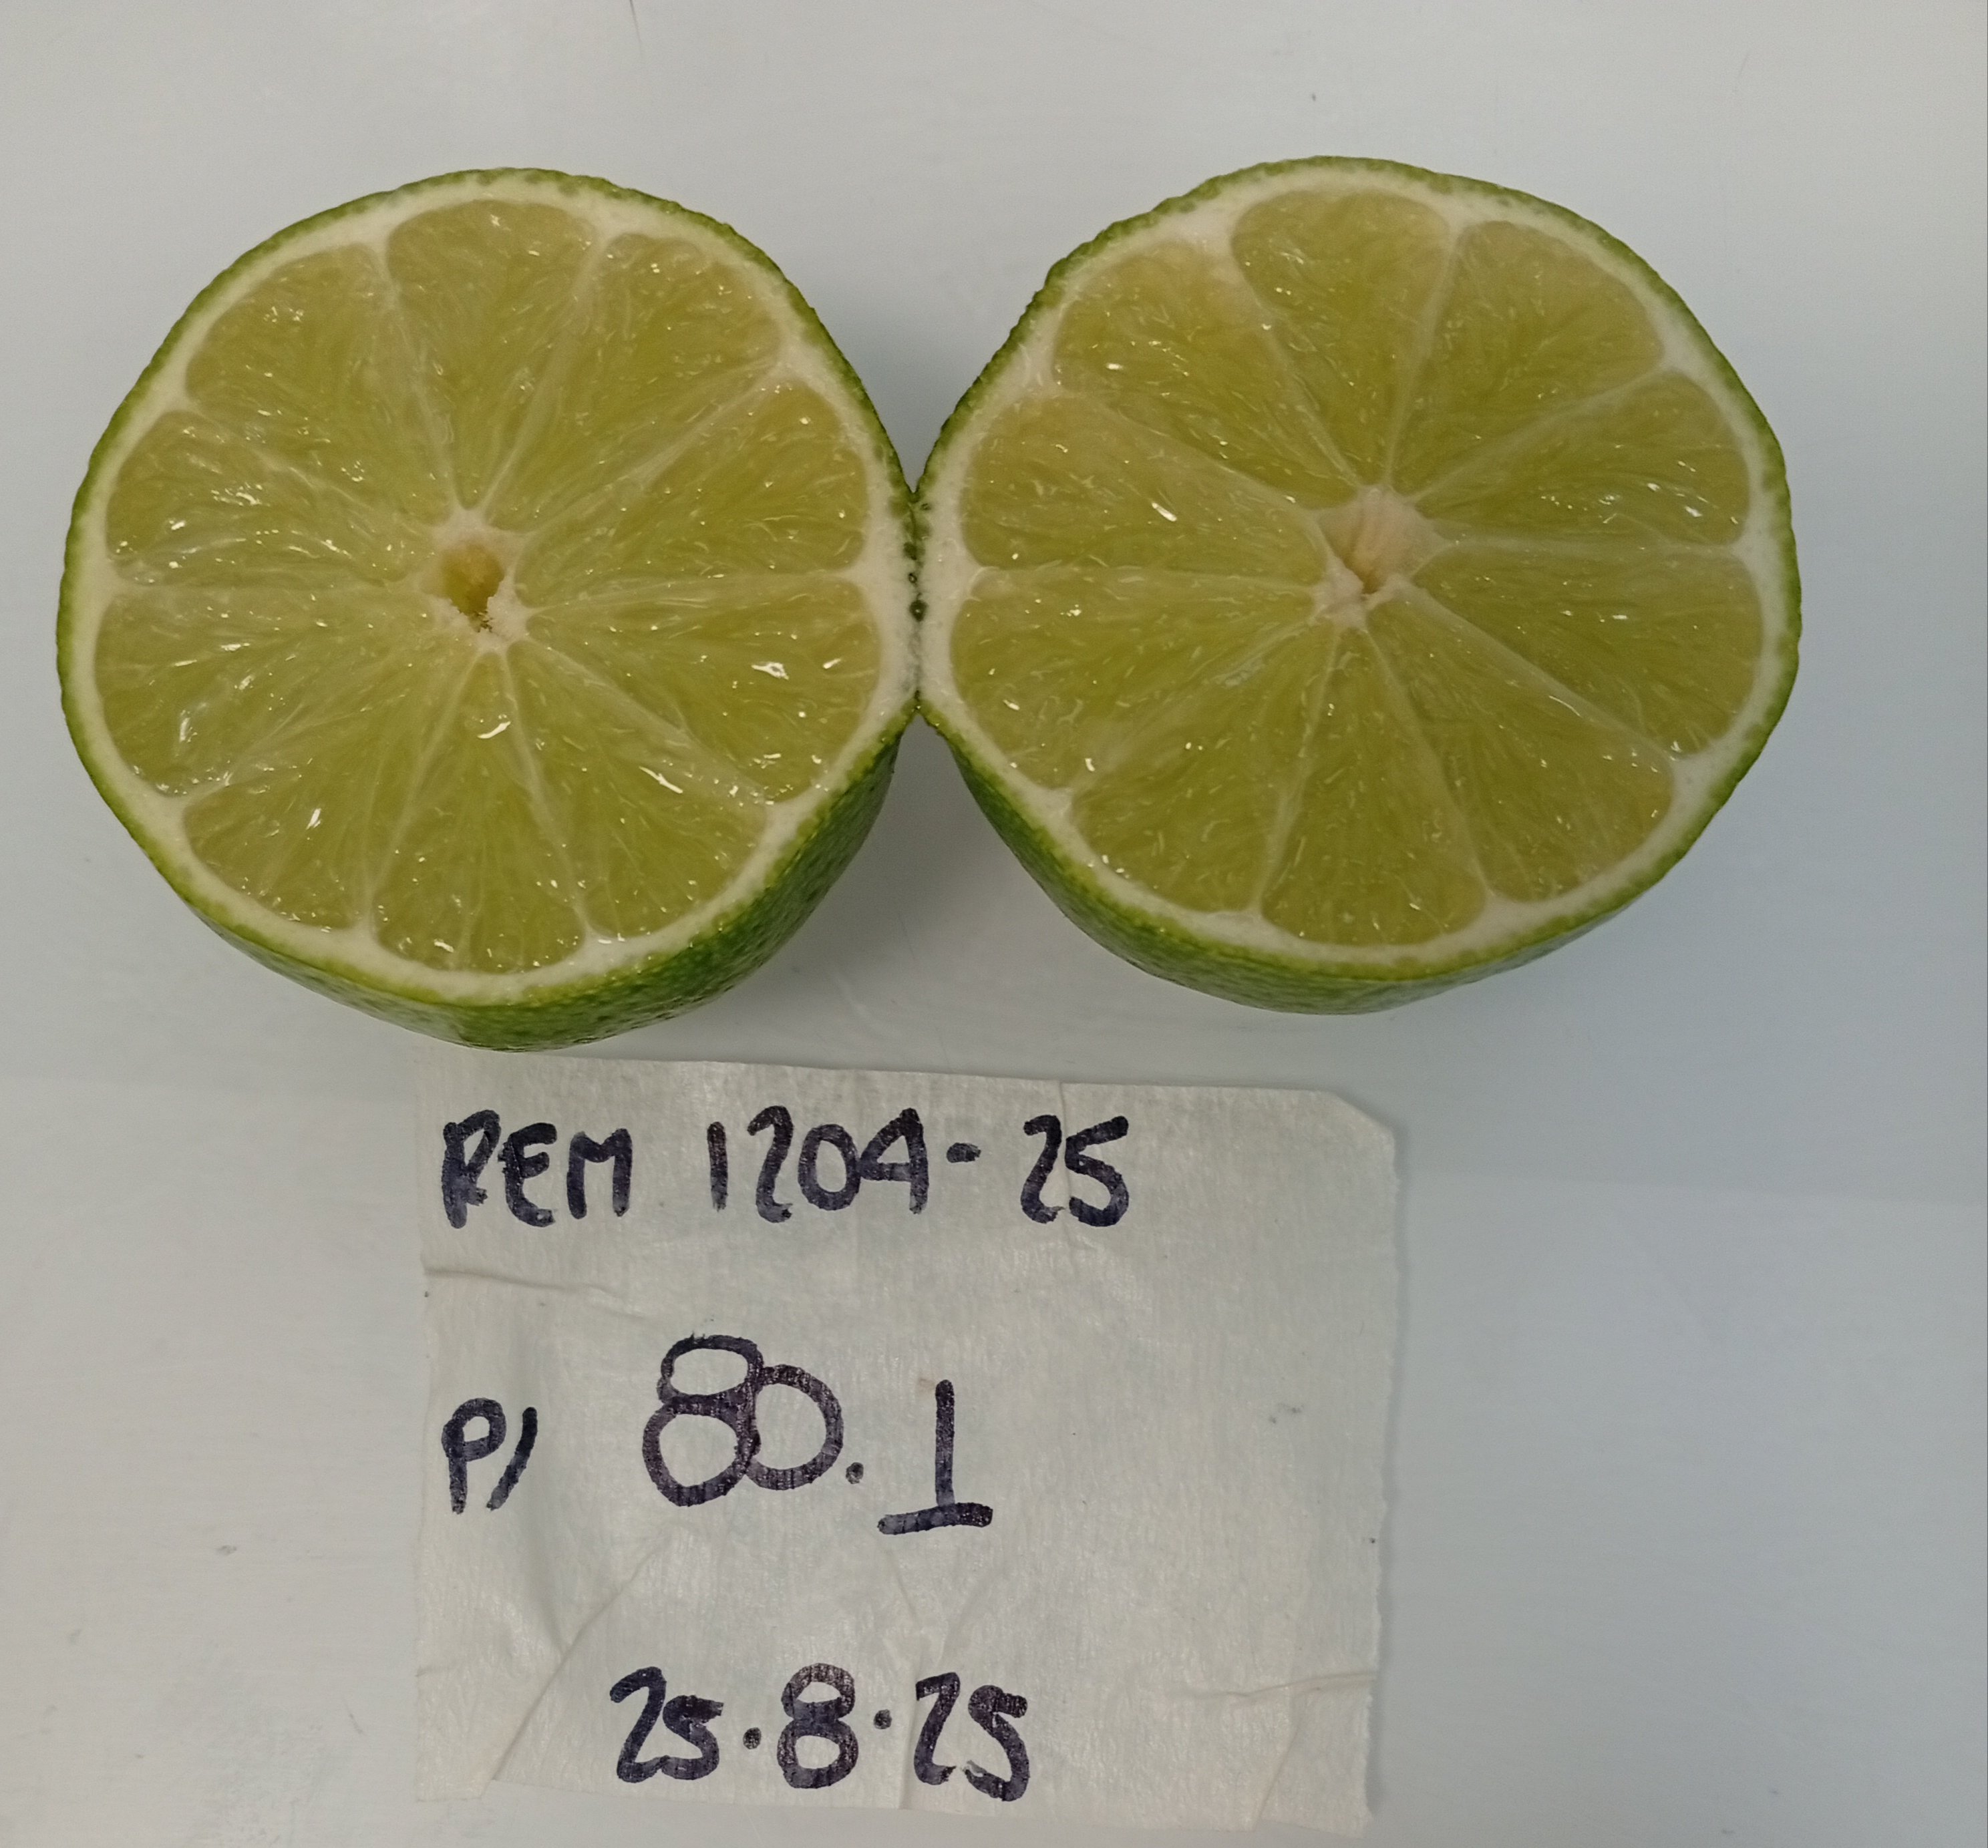 REM 1204-25
P/ 80.1
25.8.25